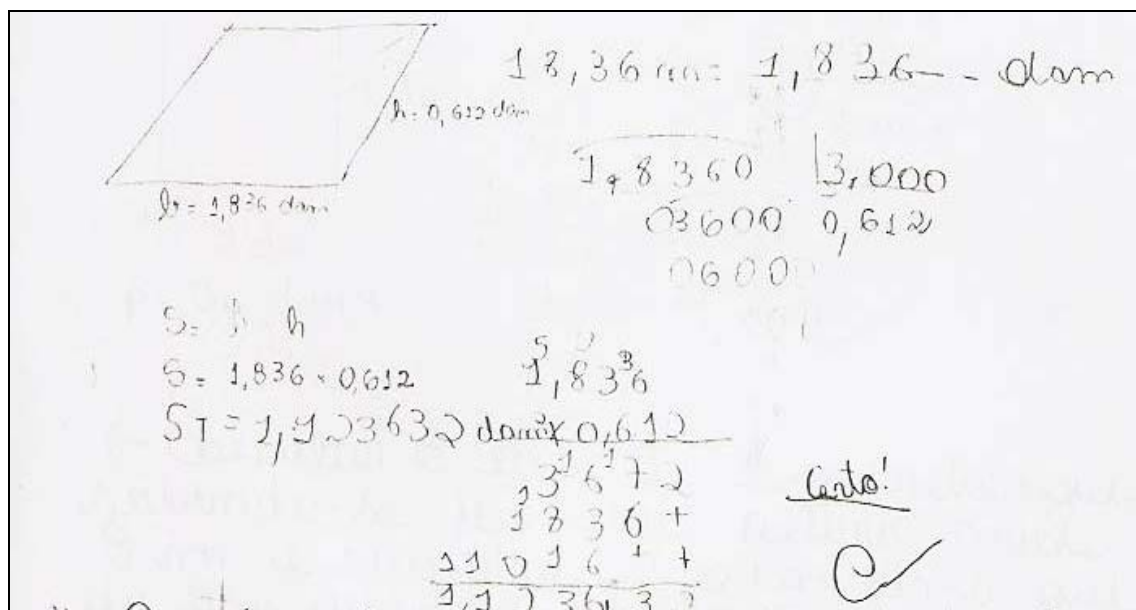 18,36 m = 1,836 -- dam
h = 0,612 dam
b = 1,836 dam
1,8360 |3,000
03600 0,612
0600
S = b h
S = 1,836 × 0,612
ST = 1,123632 dam²
1,836
x 0,612
3672
1836+
11016++
1,123632
Certo!